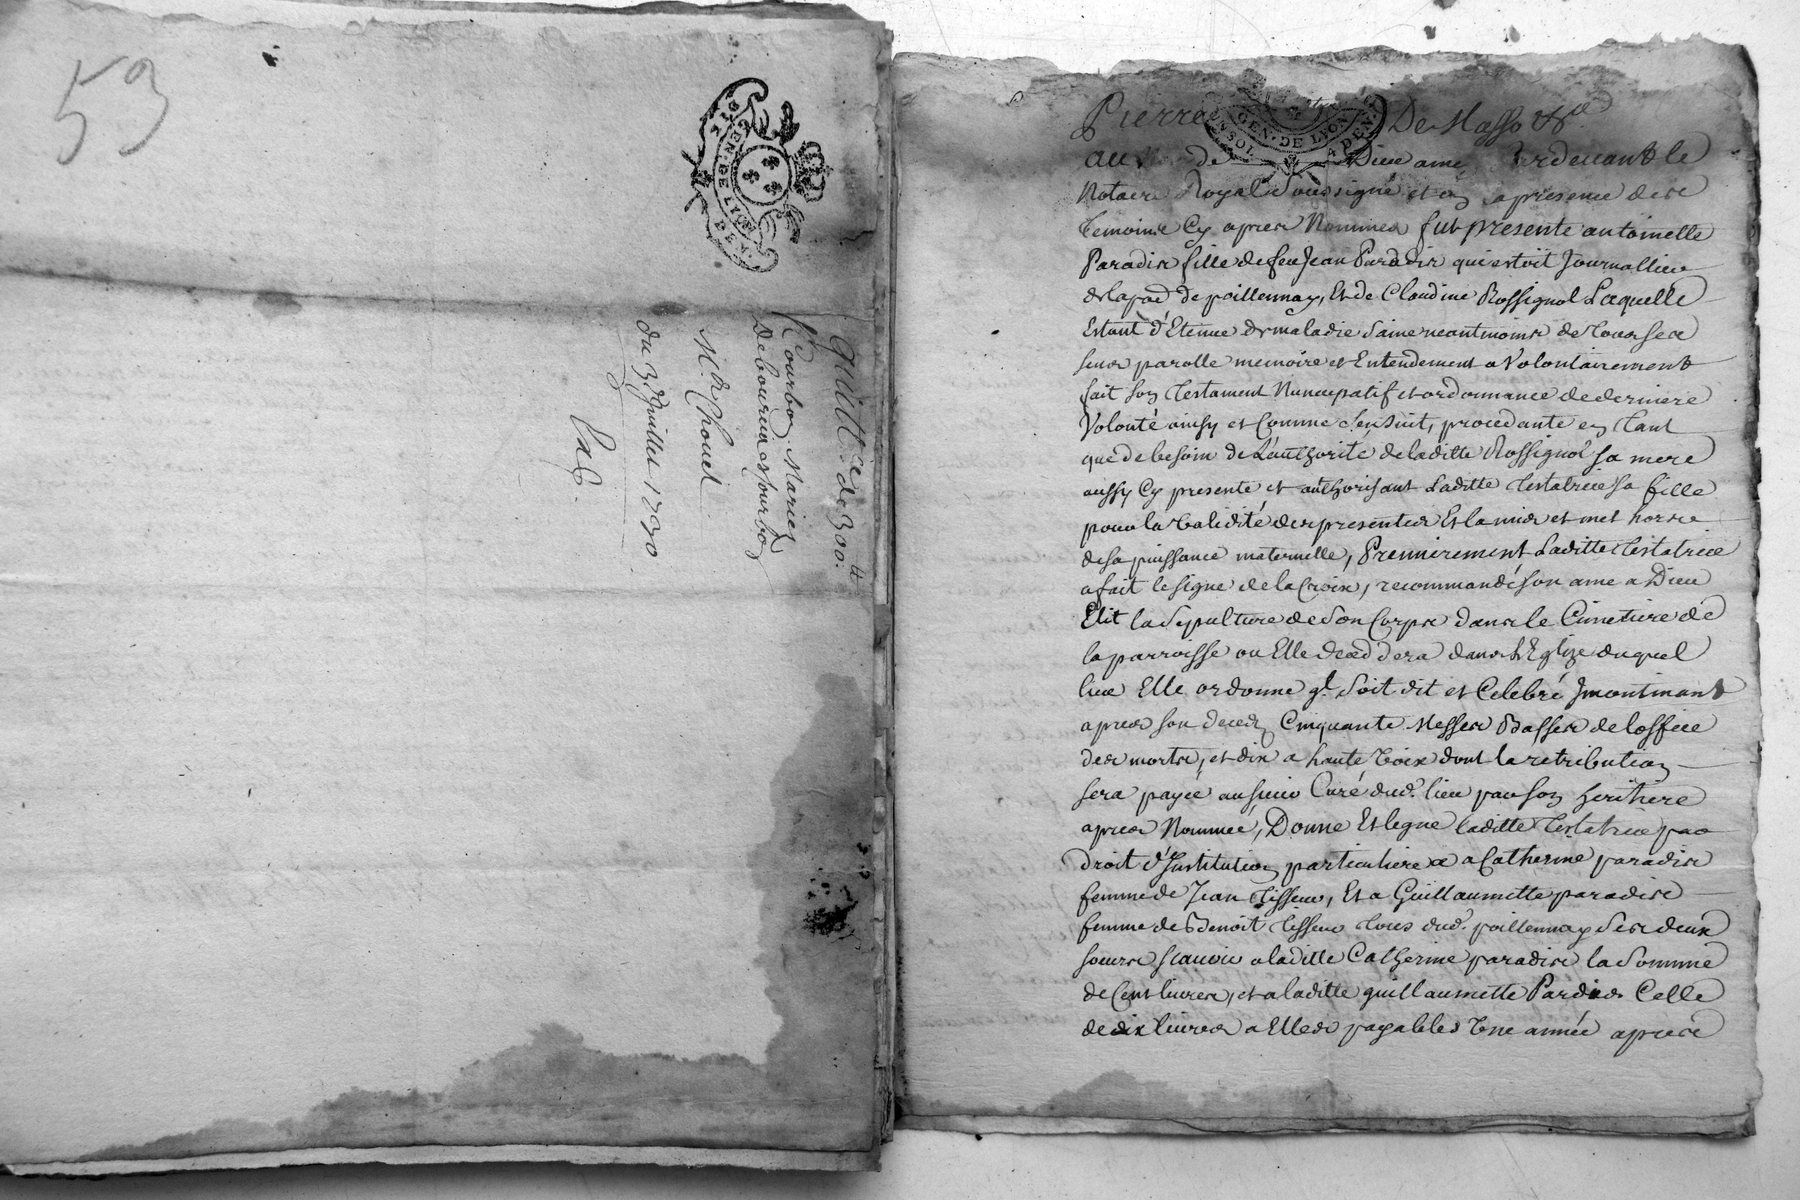 53
GEN·DE LYON
Quitt.ce de 300.#
Courbon Maries
De boureu et Courbon
Me Chouel
du 3e Juillet 1730
GEN·DE LYON
Pierre De Masso &c
au de Dieu amé Pardevant le
Notaire Royal Soussigné et en presence des
Temoins Cy apres Nommes fut presente antoinette
Paradis fille de feu Jean Paradis qui estoit Journallier
de la par de poillennay, Et de Claudine Rossignol Laquelle
Estant d'Etenue de maladie saine neantmoins de tous ses
sens parolle memoire et Entendement a Volontairement
fait son Testament Nuncupatif et ordonnance de derniere
Volonté ainsy et Comme s'en suit, procedante en tant
que de besoin de L'authorité de laditte Rossignol sa mere
aussy Cy presente et authorisant Laditte Testatrice sa fille
pour la validité des presentes Et la mis et met hors
de sa puissance maternelle, Premierement Laditte Testatrice
a fait le signe de la Croix, recommandé son ame a Dieu
Elit la Sepulture de Son Corps dans le Cimetiere de
la parroisse ou Elle decedera dans L'Eglize duquel
lieu Elle ordonne ql. Soit dit et Celebré Jncontinant
apres son deces Cinquante Messes Basses de loffice
des morts, et dix a haute voix dont la retribution
sera payée au sieur Curé dud. lieu par son heritiere
apres Nommée, Donne Et legue laditte Testatrice par
droit d'Institution particuliere a Catherine paradis
femme de Jean Tisseur, Et a Guillaumette paradis
femme de Benoit Tisseur tous dud. poillennay Ses deux
soeurs scauoir a laditte Catherine paradis la Somme
de Cent livres, et a laditte guillaumette Pardis Celle
de dix livres a Elles payables Une année apres